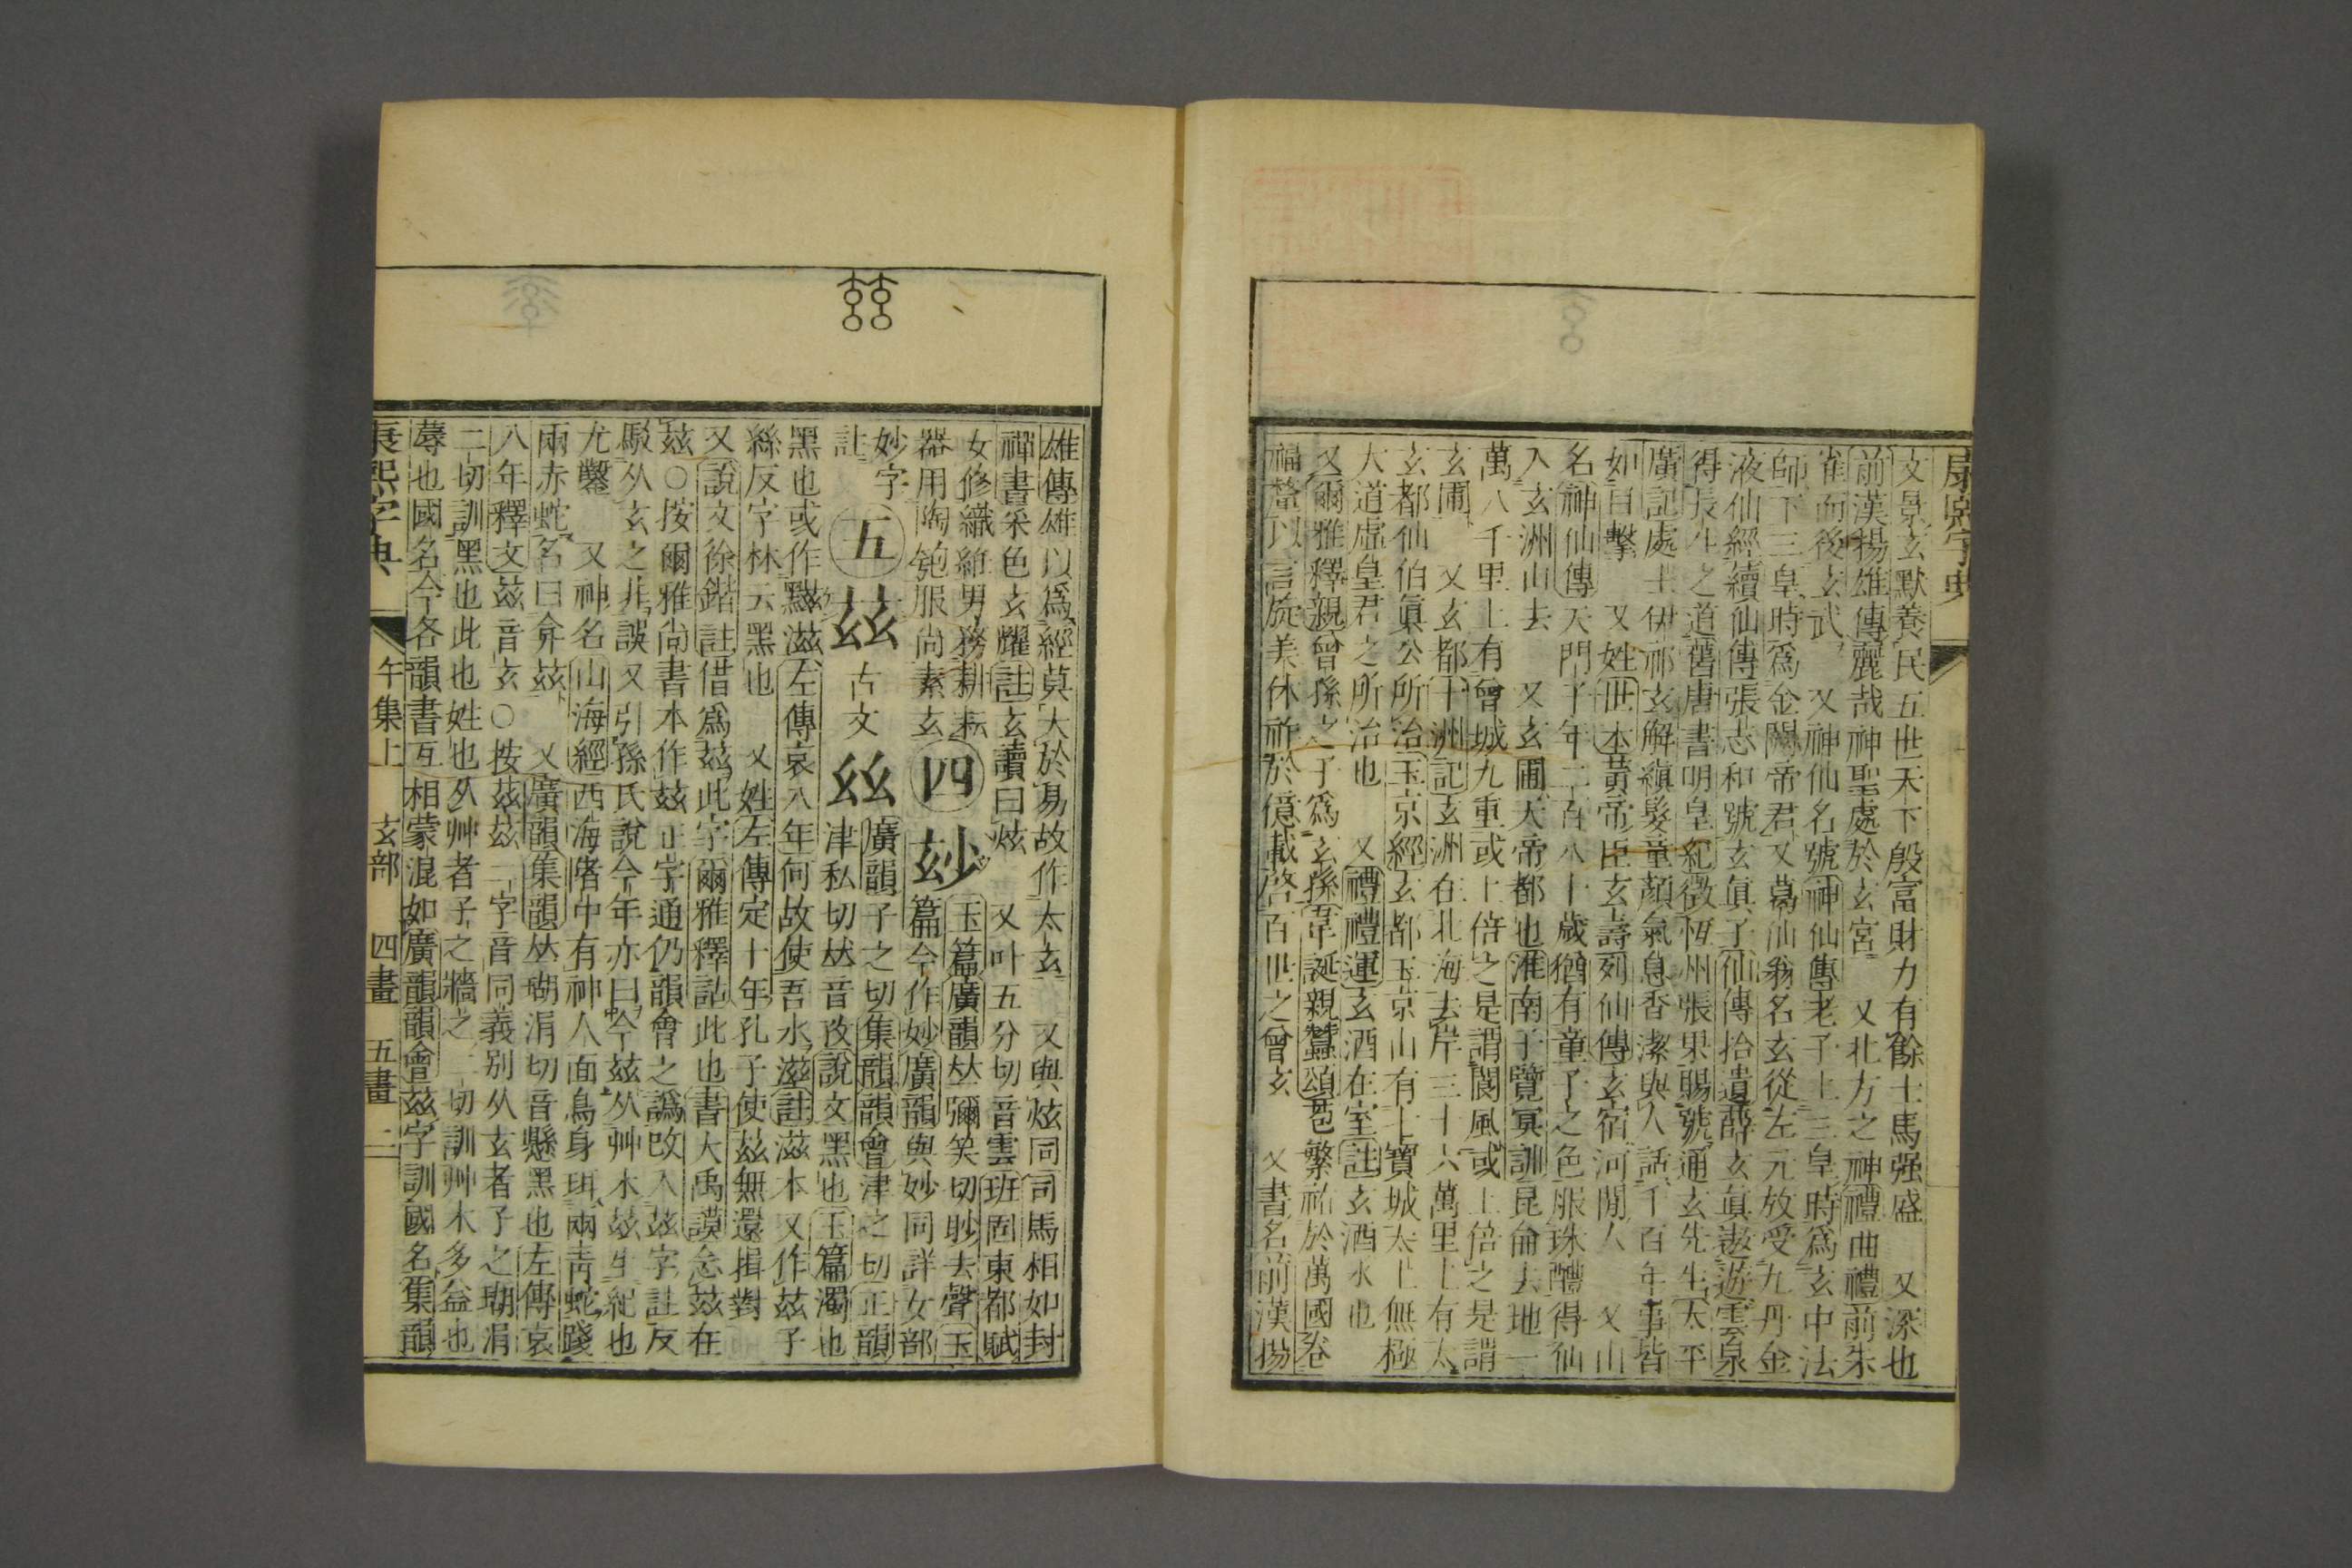 文景玄默養民五世天下殷富財力有餘士馬强盛 又深也
前漢揚雄傳麗哉神聖處於玄宮 又北方之神禮曲禮前朱
雀而後玄武 又神仙名號神仙傳老子上三皇時爲玄中法
師下三皇時爲金闕帝君又葛仙翁名玄從左元放受九丹金
液仙經續仙傳張志和號玄眞子仙傳拾遺薛玄眞遨遊雲泉
得長生之道舊唐書明皇紀徵恆州張果賜號通玄先生太平
廣記處士伊祁玄解縝髮童顏氣息香潔與人話千百年事皆
如目擊 又姓世本黃帝臣玄壽列仙傳玄宿河閒人 又山
名神仙傳天門子年二百八十歲猶有童子之色服珠醴得仙
入玄洲山去 又玄圃天帝都也淮南子覽冥訓昆侖去地一
萬八千里上有曾城九重或上倍之是謂閬風或上倍之是謂
玄圃 又玄都十洲記玄洲在北海去岸三十六萬里上有太
玄都仙伯眞公所治玉京經玄都玉京山有七寶城太上無極
大道虛皇君之所治也 又禮禮運玄酒在室註玄酒水也
又爾雅釋親曾孫之子爲玄孫韋誕親蠶頌苞繁祐於萬國卷
福釐以言旋美休祚於億載啓百世之曾玄 又書名前漢揚
雄傳雄以爲經莫大於易故作太玄 又與炫同司馬相如封
禪書采色玄耀註玄讀曰炫 又叶五分切音雲班固東都賦
女修織絍男務耕耘
器用陶匏服尚素玄 四 玅 玉篇廣韻𠀤彌笑切眇去聲玉
篇今作妙廣韻與妙同詳女部
妙字
註 五 玆 古文 𢆶 廣韻子之切集韻韻會津之切正韻
津私切𠀤音孜說文黑也玉篇濁也
黑也或作黮滋左傳哀八年何故使吾水滋註滋本又作玆子
絲反字林云黑也 又姓左傳定十年孔子使玆無還揖對
又說文徐鍇註借爲玆此字爾雅釋詁此也書大禹謨念玆在
玆○按爾雅尚書本作玆正字通仍韻會之譌攺入玆字註反
駁从玄之非誤又引孫氏說今年亦曰今玆从艸木玆生紀也
尤鑿 又神名山海經西海陼中有神人面鳥身珥兩靑蛇踐
兩赤蛇名曰弇玆 又廣韻集韻𠀤胡涓切音懸黑也左傳哀
八年釋文玆音玄○按茲玆二字音同義别从玄者子之胡涓
二切訓黑也此也姓也从艸者子之牆之二切訓艸木多益也
蓐也國名今各韻書互相蒙混如廣韻韻會玆字訓國名集韻
康熙字典 午集上 玄部 四畫 五畫 二